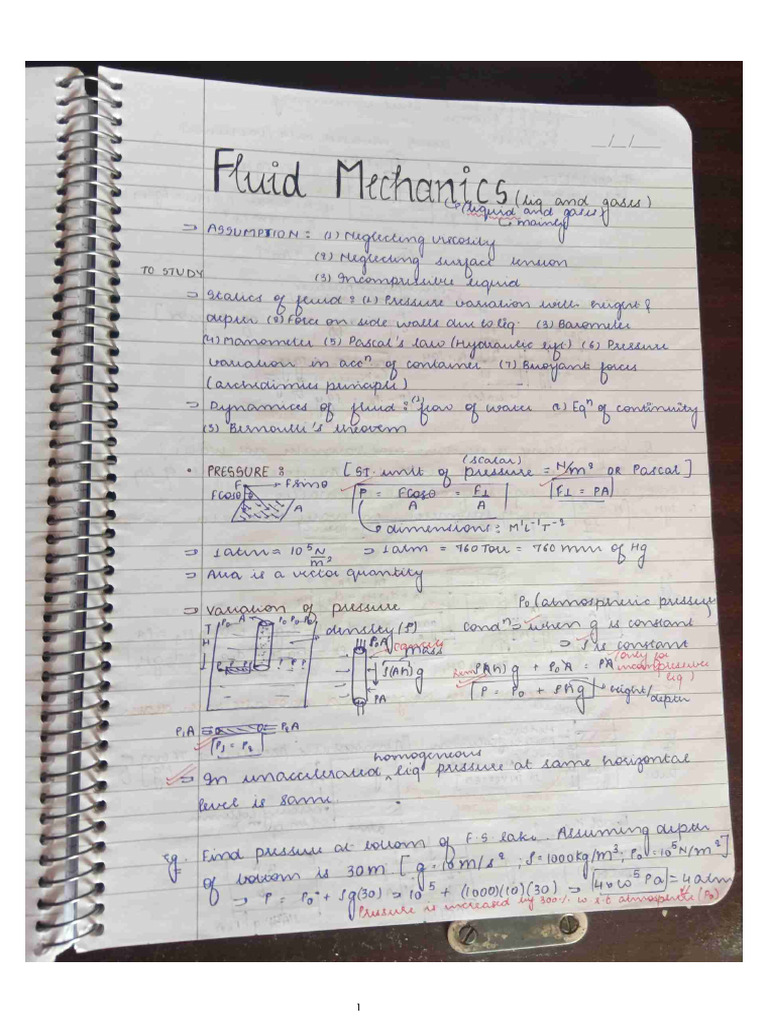 __/__/__
Fluid Mechanics (liq and gases)
(liquid and gases)
↳ mainly
⇒ ASSUMPTION : (1) Neglecting viscosity
(2) Neglecting surface tension
TO STUDY
(3) Incompressible liquid
⇒ Statics of fluid : (1) Pressure variation with height &
depth (2) Force on side walls due to liq. (3) Barometer
(4) Manometer (5) Pascal's law (Hydraulic lift) (6) Pressure
variation in accⁿ of container (7) Buoyant forces
(archidimics principle)
⇒ Dynamices of fluid : (1) flow of water (2) Eqⁿ of continuity
(3) Bernoulli's theorem
• PRESSURE : [SI. unit of pressure (scalar) = N/m² OR Pascal]
F Fsinθ
Fcosθ A
P = Fcosθ/A = F⊥/A F⊥ = PA
↳ dimensions : M¹L⁻¹T⁻²
⇒ 1 atm = 10⁵ N/m² ⇒ 1 atm = 760 Tou = 760 mm of Hg
⇒ Area is a vector quantity
⇒ Variation of pressure P₀ (atmospheric pressure)
density (ρ) condⁿ ⇒ when g is constant
⇒ ρ is constant
P₀ A P₀ P₀ P₀
H
P₀A
mass
ρ(Ah)g
PA
ρ(Ah)g + P₀A = PA (only for incompressible liq)
P = P₀ + ρhg → height/depth
P₁A P₂A
P₁ = P₂
⇒ In unaccelerated homogeneous liq pressure at same horizontal
level is same.
Eg. Find pressure at bottom of F.S lake. Assuming depth
of bottom is 30m [g = 10 m/s² ; ρ = 1000 kg/m³, P₀ = 10⁵ N/m²]
⇒ P = P₀ + ρg(30) ⇒ 10⁵ + (1000)(10)(30) ⇒ 4×10⁵ Pa = 4 atm
Pressure is increased by 300% w.r.t atmospheric (P₀)
1